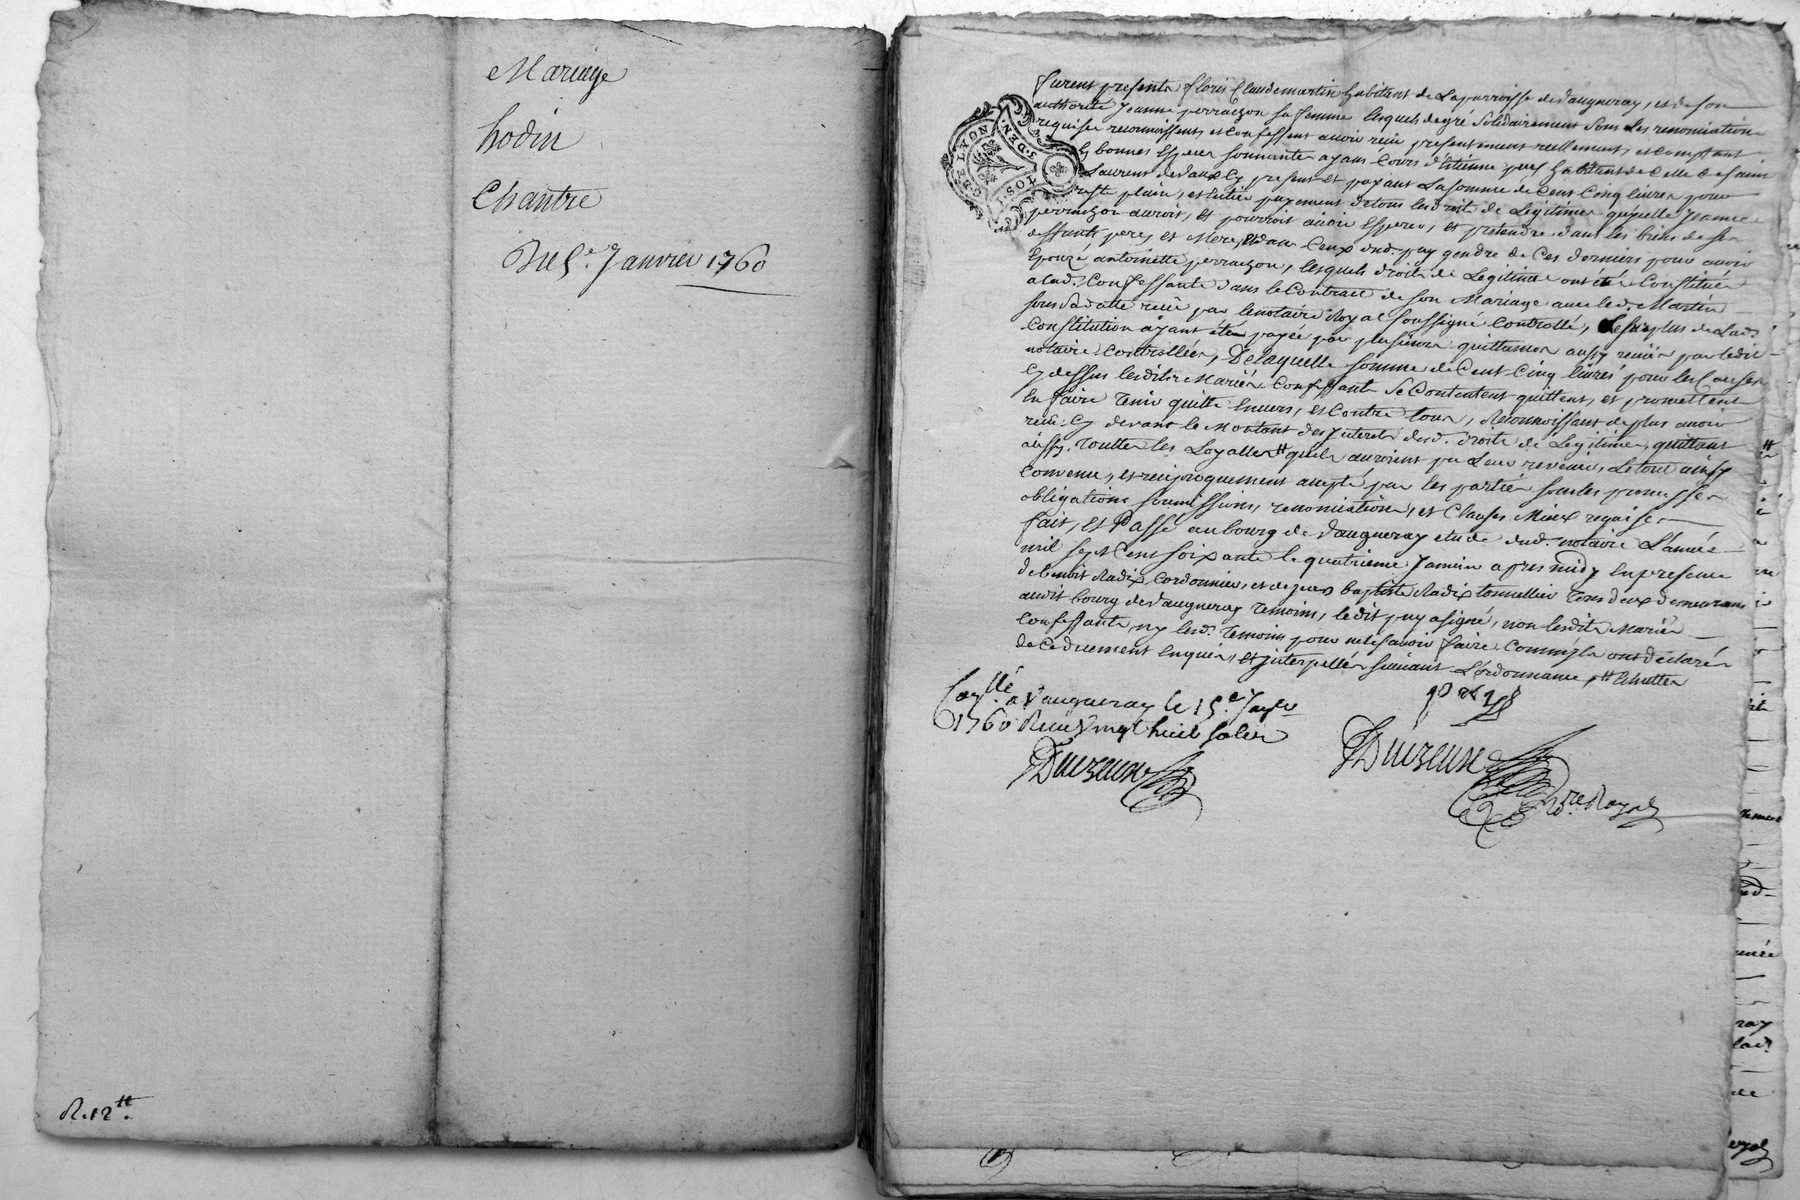 Mariage
hodin
Chantre
Du 5e. Janvier 1760
R. 12tt.
GNE LYON
S. DEN.
1 SOL
furent presents floris Claude martin habitant de La parroisse de Vaugneray, et de son
authorité Jeanne perrachon sa femme lesquels de gré solidairement sous les renonciations
requises reconnoissent, et Confessent avoir reçu presentement reellement, et Comptant
En bonnes Especes sonnantes ayans Cours d'Etienne puy habitant de Celle de saint
Laurent de Vaux Cy present et payant La somme de Cent Cinq livres pour
reste plain, et Entier payement de tous les droits de Legitimes qu'elle Jeanne
perrachon auroit, et pourroit avoir Esperer, et pretendre dans les biens de ses
deffunts peres et Mere, et dans Ceux dud. puy gendre de Ces derniers pour avoir
Epouzé antoinette perrachon, lesquels droits de Legitime ont été Constitués
a lad. Confessante dans le Contract de son Mariage avec led. Martin
sous sa datte reçu par le notaire Royal soussigné Controllé, Le surplus de Lad.
Constitution ayant été payée par plusieurs quittances aussy reçües par ledit
notaire Controllées, De laquelle somme de Cent Cinq livres pour les Causes
Cy dessus lesdits Mariés Confessants se Contentent quittent, et promettent
En faire tenir quitte Envers, et Contre tous, Reconnoissant de plus avoir
reçu Cy devant le Montant des Interets desd. droits de Legitimes, quittant
aussy toutes les Loyalles qu'ils auroient pu Leur revenir, Le tout ainsy
Convenu, et reciproquement accepté par les parties sous les promesses
obligations soumissions, renonciations, et Clauses Mieux requises
fait, et Passé au bourg de Vaugneray etude dud. notaire L'année
mil sept Cent soixante le quatrieme Janvier apres midy En presence
de benoit Radix Cordonnier, et de jean baptiste Radix tonnellier tous deux demeurans
audit bourg de Vaugneray temoins, ledit puy a signé, non lesdits Mariés
Confessants, ny lesd. temoins pour ne le savoir faire Comme ils ont declaré
de Ce duement Enquis, et Interpellés suivant L'ordonnance
puy
Con.llé a Vaugneray le 15e. Janvr
1760 Reçu Vingt huit sols
Duvzeuse
Duvzeuse
No.re Royal